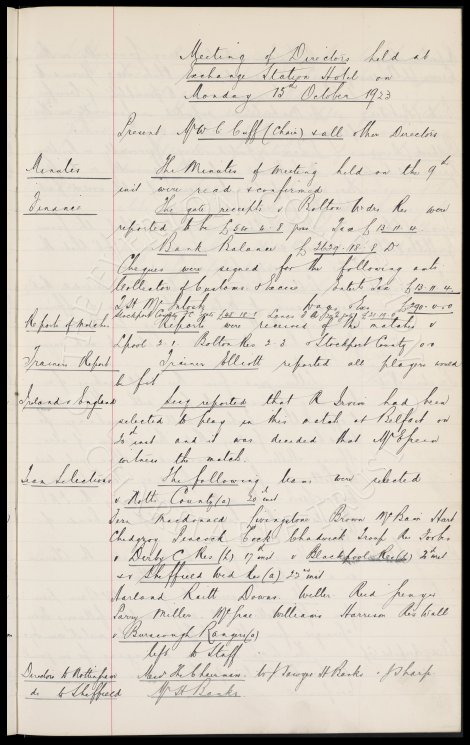 Meeting of Directors held at
Exchange Station Hotel on
Monday 15th October 1923
Present Mr W C Cuff (Chair) & all other Directors
Minutes The Minutes of meeting held on the 9th
inst were read & confirmed
Finance The gate receipts v Bolton Wdrs Res were
reported to be £64 4 8 Tax £13 11 4
Bank Balance £2629 18 8 Dr
Cheques were signed for the following accts
Collector of Customs & Excise Entert Tax £13 11 4
Wages £290 0 0
Stockport County FC
Reports of Matches Reports were received of the matches v
Lpool 2 1 Bolton Res 2 3 v Stockport County 0 0
Trainers Report Trainer Elliott reported all players would
be fit
Ireland v England Secy reported that
had been
selected to play in this match at Belfast on
20th inst and it was decided that Mr Green
witness the match
Team Selections The following teams were selected
v Notts County (a) 20th inst
Fern Macdonald Livingstone Brown McBain Hart
Chedgzoy Peacock Cock Chadwick Troup Res Forbes
v Derby C Res (h) 17th inst v Blackpool Res (h) inst
& v Sheffield Wed Res (a) 22nd inst
Harland Raitt Downs Weller Reid
Parry Miller Williams Harrison Res Wall
v Burscough Rangers (a)
left to Staff
Directors to Nottingham The Chairman W J Sawyer H Banks & J Sharp
do to Sheffield Mr H Banks